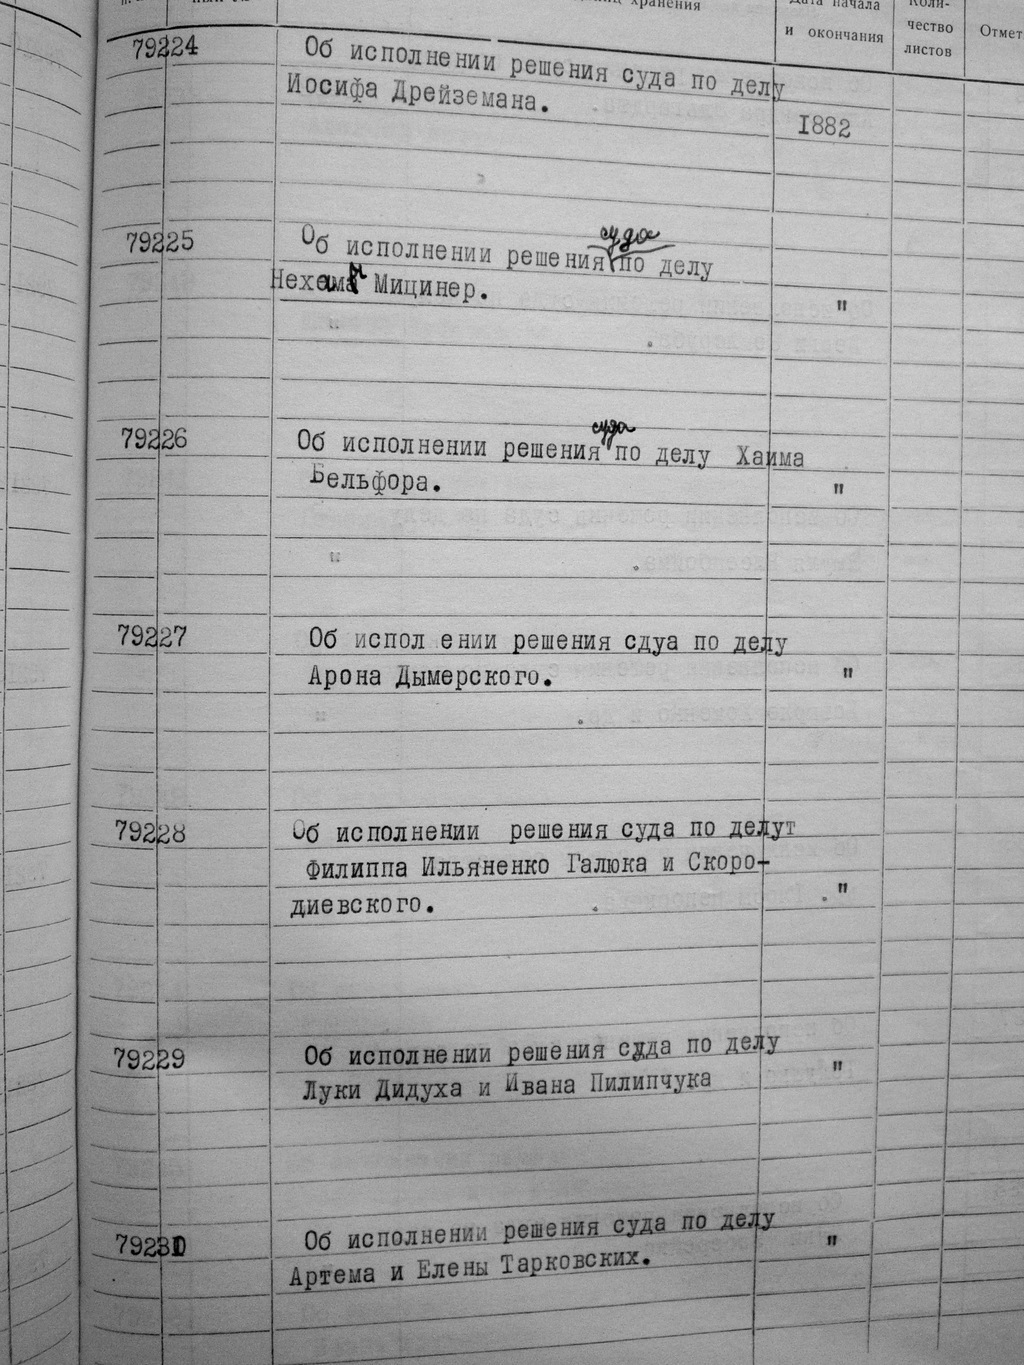 хранения
Дата начала
и окончания
Коли-
чество
листов
Отмет
79224 Об исполнении решения суда по делу
Иосифа Дрейземана.
1882
79225 Об исполнении решения суда по делу
Нехамы Мицинер.
"
79226 Об исполнении решения суда по делу Хаима
Бельфора.
"
79227 Об испол ении решения сдуа по делу
Арона Дымерского.
"
79228 Об исполнении решения суда по делут
Филиппа Ильяненко Галюка и Скоро-
диевского.
"
79229 Об исполнении решения суда по делу
Луки Дидуха и Ивана Пилипчука
"
79230 Об исполнении решения суда по делу
Артема и Елены Тарковских.
"